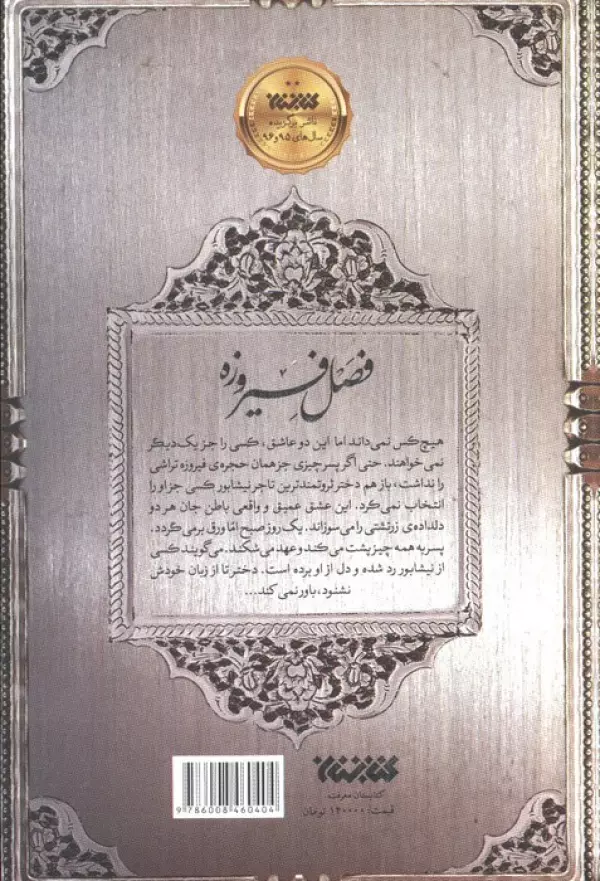 کتابستان
ناشر برگزیده
سال‌های ۹۵ و ۹۶
فصل فیروزه
هیچ‌کس نمی‌داند اما این دو عاشق، کسی را جز یک‌دیگر
نمی‌خواهند. حتی اگر پسر چیزی جز همان حجره‌ی فیروزه تراشی
را نداشت، باز هم دختر ثروتمندترین تاجر نیشابور کسی جز او را
انتخاب نمی‌کرد. این عشق عمیق و واقعی باطن جان هر دو
دلداده‌ی زرتشتی را می‌سوزاند. یک روز صبح اما ورق برمی‌گردد،
پسر به همه چیز پشت می‌کند و عهد می‌شکند. می‌گویند کسی
از نیشابور رد شده و دل از او برده است. دختر تا از زبان خودش
نشنود، باور نمی‌کند...
کتابستان
کتابستان معرفت
قیمت: ۱۴۰۰۰۰ تومان
9 786008 460404